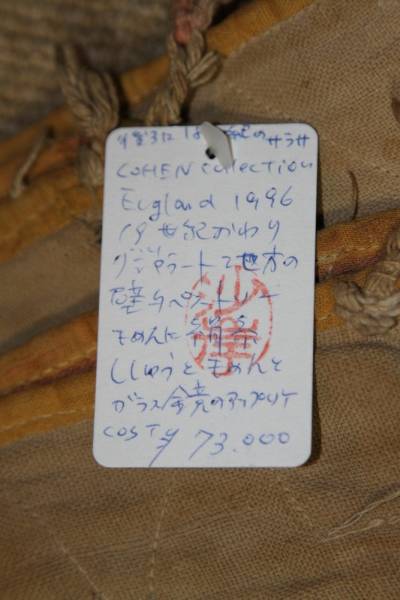 19世紀のサラサ
COHEN collection
England 1996
19世紀おわり
グジャラート地方の
壁タペストリー
もめんに絹糸
ししゅうともめんと
ガラス鏡のアップリケ
COST ¥73.000